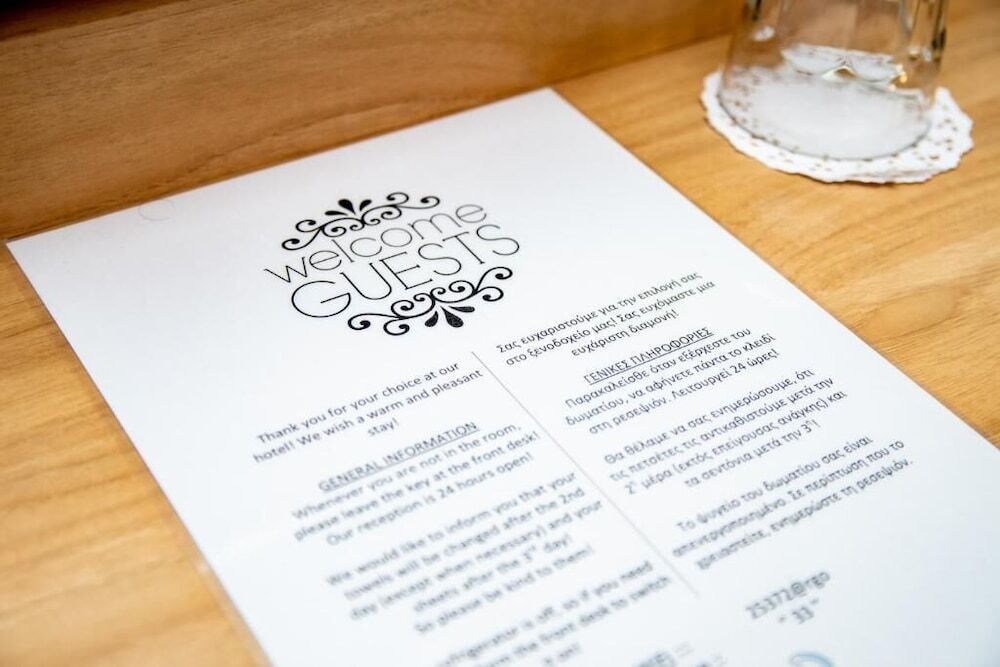 welcome
GUESTS
Thank you for your choice at our
hotel! We wish a warm and pleasant
stay!
GENERAL INFORMATION
Whenever you are not in the room,
please leave the key at the front desk!
Our reception is 24 hours open!
We would like to inform you that your
towels will be changed after the 2nd
day (except when necessary) and your
sheets after the 3rd day!
So please be kind to them!
frigerator is off, so if you need
the front desk to switch
it on!
Σας ευχαριστούμε για την επιλογή σας
στο ξενοδοχείο μας! Σας ευχόμαστε μια
ευχάριστη διαμονή!
ΓΕΝΙΚΕΣ ΠΛΗΡΟΦΟΡΙΕΣ
Παρακαλείσθε όταν εξέρχεστε του
δωματίου, να αφήνετε πάντα το κλειδί
στη ρεσεψιόν. Λειτουργεί 24 ώρες!
Θα θέλαμε να σας ενημερώσουμε, ότι
τις πετσέτες τις αντικαθιστούμε μετά την
2η μέρα (εκτός επείγουσας ανάγκης) και
τα σεντόνια μετά την 3η!
Το ψυγείο του δωματίου σας είναι
απενεργοποιημένο. Σε περίπτωση που το
χρειαστείτε, ενημερώστε τη ρεσεψιόν.